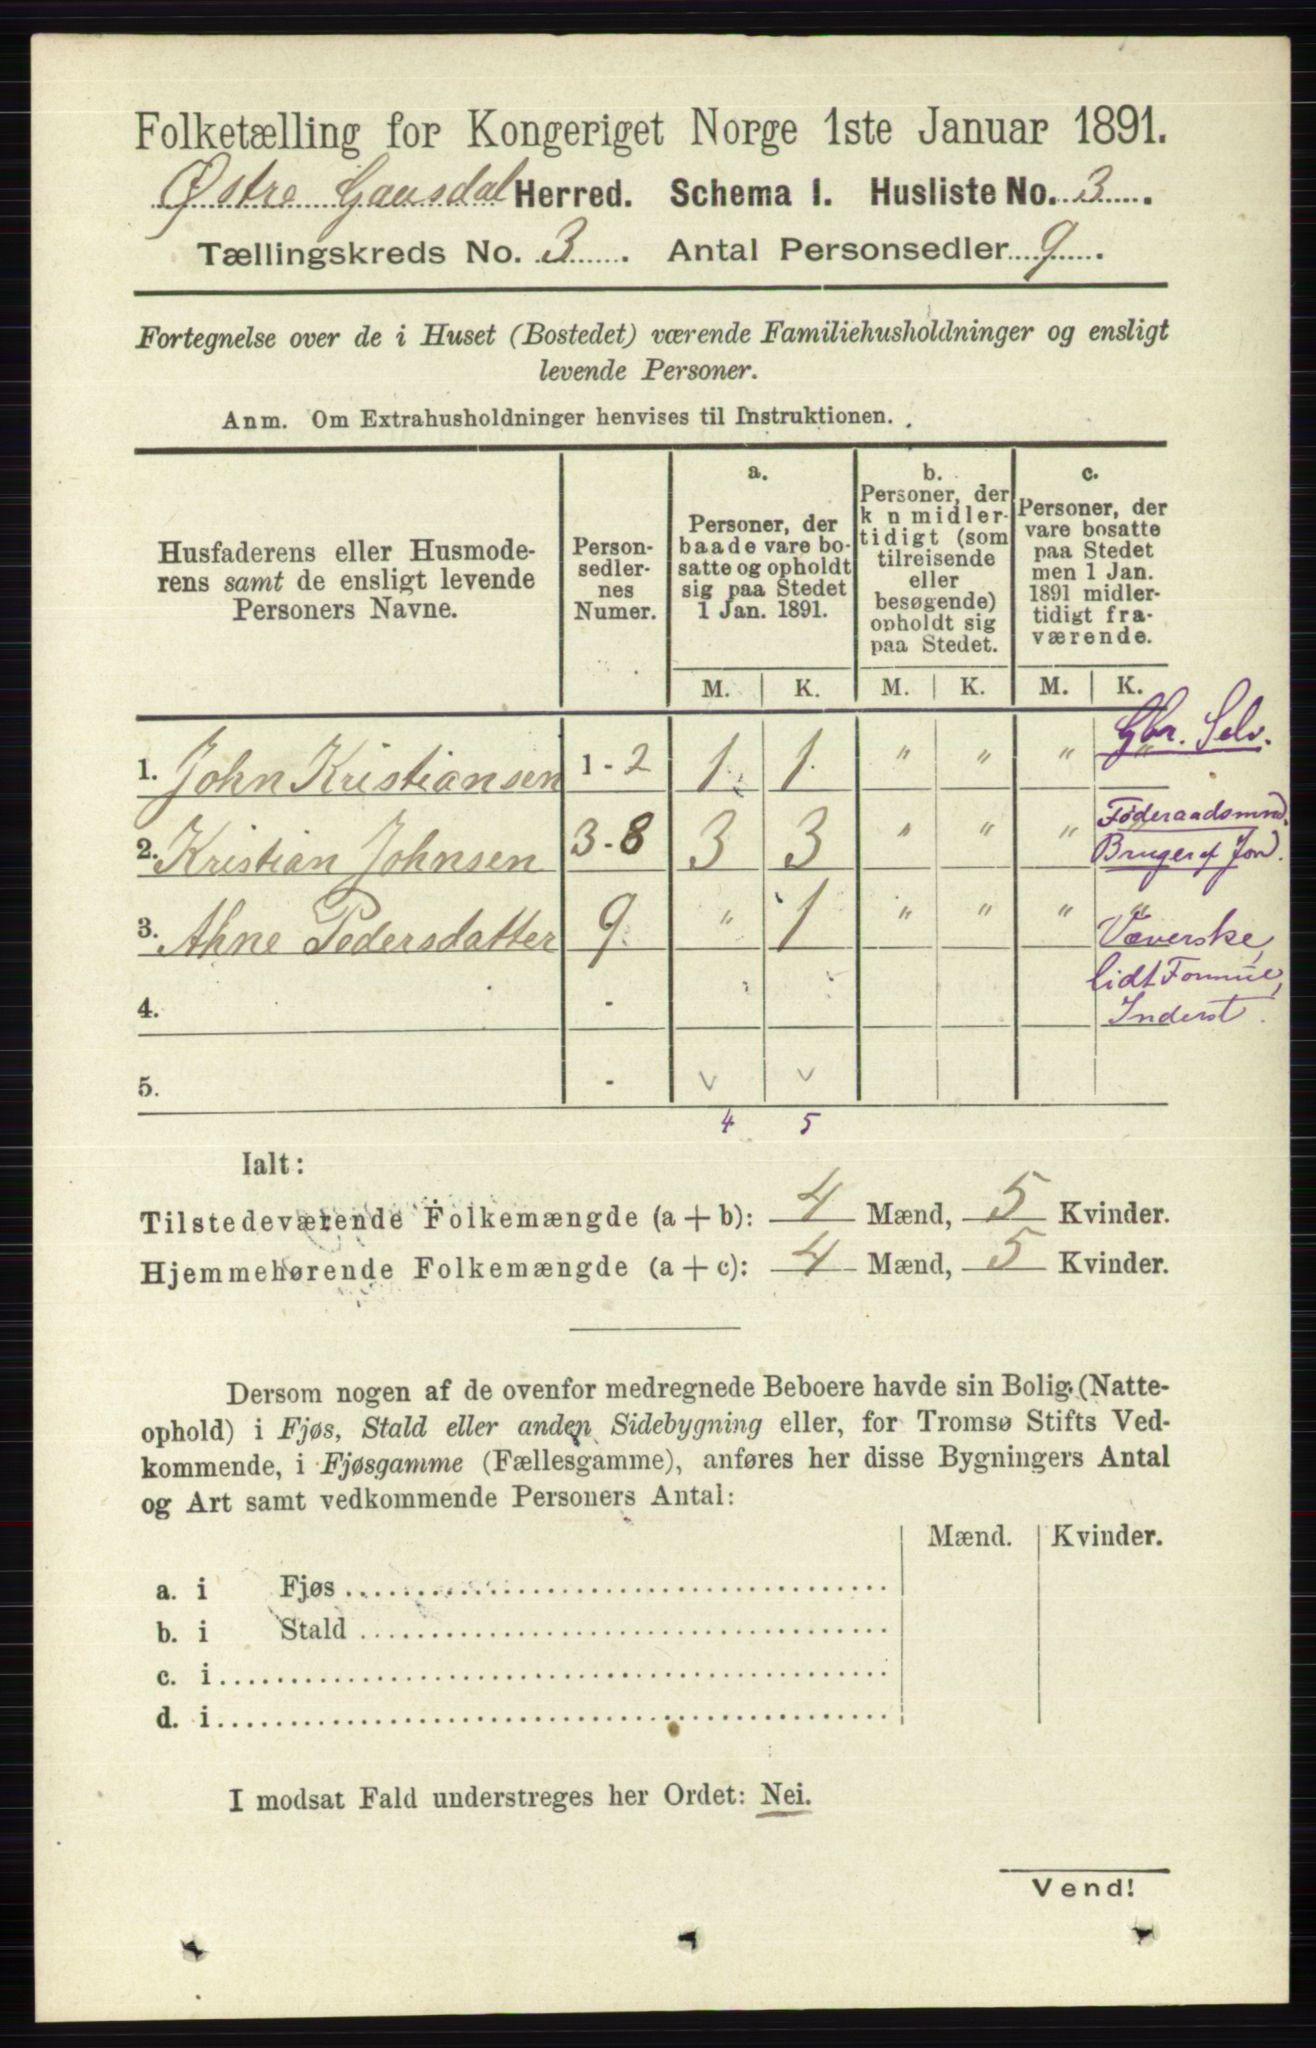 Folketælling for Kongeriget Norge 1ste Januar 1891.
Østre Gausdal Herred. Schema 1. Husliste No. 3.
Tællingskreds No. 3. Antal Personsedler 9.
Fortegnelse over de i Huset (Bostedet) værende Familiehusholdninger og ensligt
levende Personer.
Anm. Om Extrahusholdninger henvises til Instruktionen.
Husfaderens eller Husmode-
rens samt de ensligt levende
Personers Navne.
Person-
sedler-
nes
Numer.
a.
Personer, der
baade vare bo-
satte og opholdt
sig paa Stedet
1 Jan. 1891.
b.
Personer, der
k n midler-
tidigt (som
tilreisende
eller
besøgende)
opholdt sig
paa Stedet.
c.
Personer, der
vare bosatte
paa Stedet
men 1 Jan.
1891 midler-
tidigt fra-
værende.
M. K. M. K. M. K.
1. John Kristiansen 1-2 1 1 " " " " Gbr. Selv.
2. Kristian Johnsen 3-8 3 3 " " " Føderaadsmnd.
Bruger af Jord.
3. Ahne Pedersdatter 9. " 1 " " " "
Væverske,
lidt Formue,
4. - Inderst.
5. - v v
4 5
Ialt:
Tilstedeværende Folkemængde (a + b): 4 Mænd, 5 Kvinder.
Hjemmehørende Folkemængde (a + c): 4 Mænd, 5 Kvinder.
Dersom nogen af de ovenfor medregnede Beboere havde sin Bolig (Natte-
ophold) i Fjøs, Stald eller anden Sidebygning eller, for Tromsø Stifts Ved-
kommende, i Fjøsgamme (Fællesgamme), anføres her disse Bygningers Antal
og Art samt vedkommende Personers Antal:
Mænd. Kvinder.
a. i Fjøs
b. i Stald
c. i
d. i
I modsat Fald understreges her Ordet: Nei.
Vend!